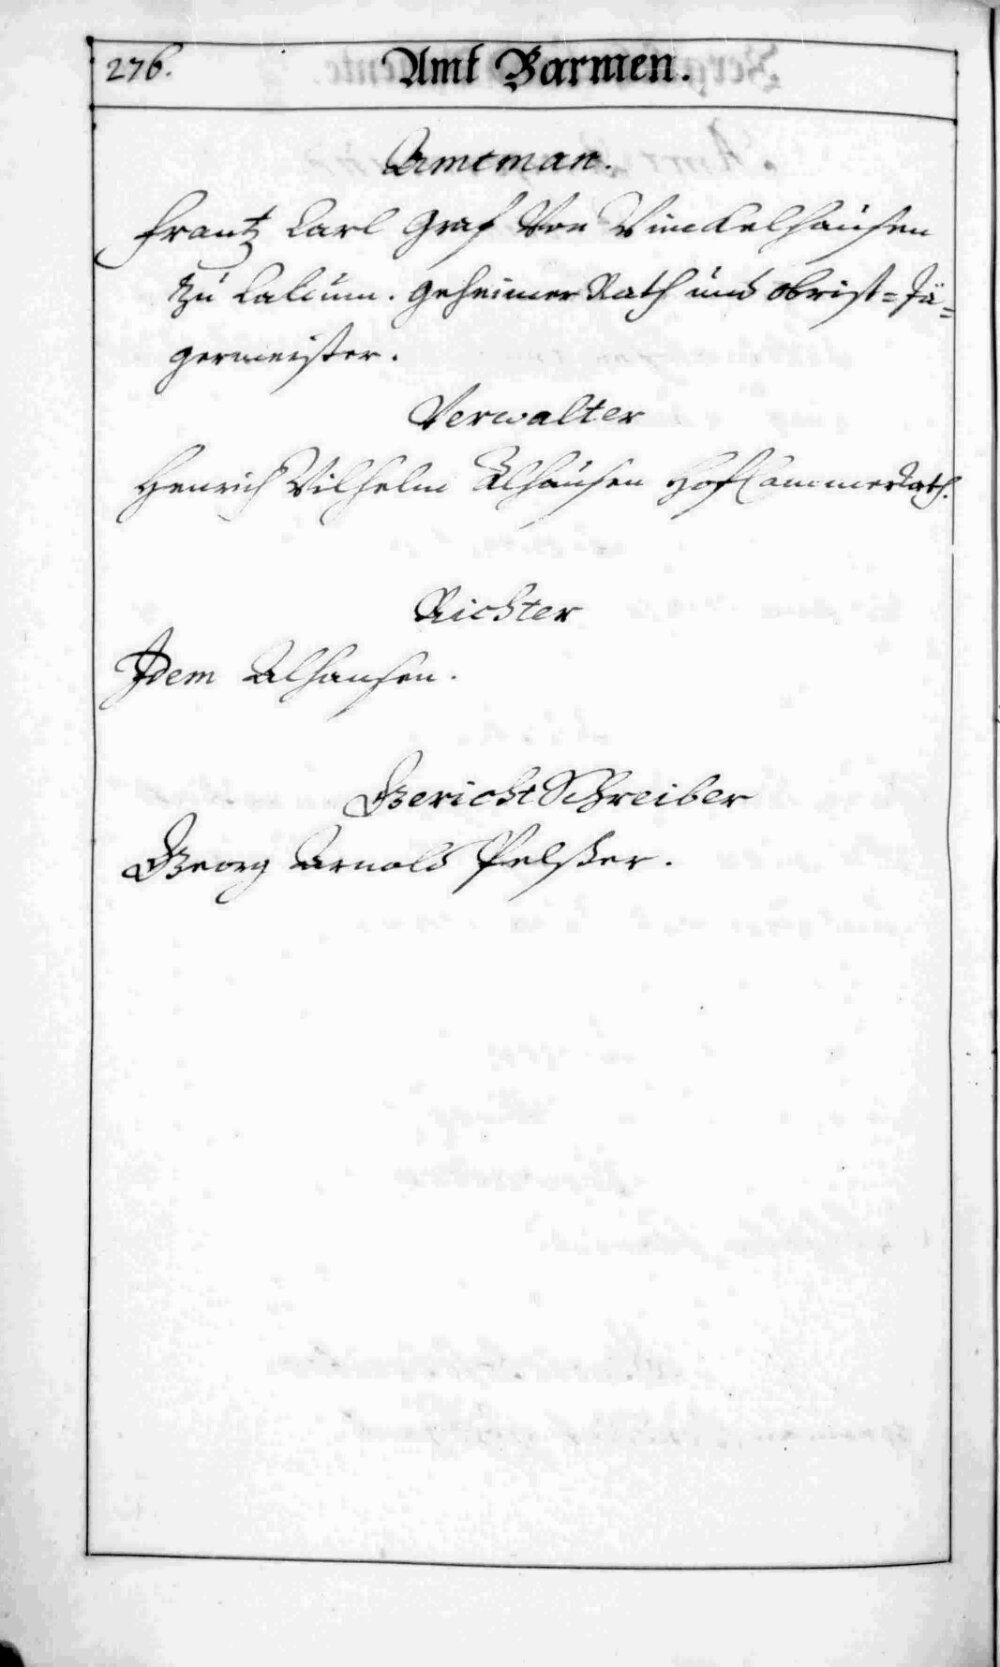 276. Amt Barmen.
Amtman.
Frantz Carl Graf Von Winckelhausen
zu Calcum. Geheimer Rath und Obrist=Jä=
germeister.
Verwalter
Henrich Wilhelm Alhausen HofCammerRath.
Richter
Idem Alhausen.
GerichtSchreiber
Georg Arnold Pelßer.